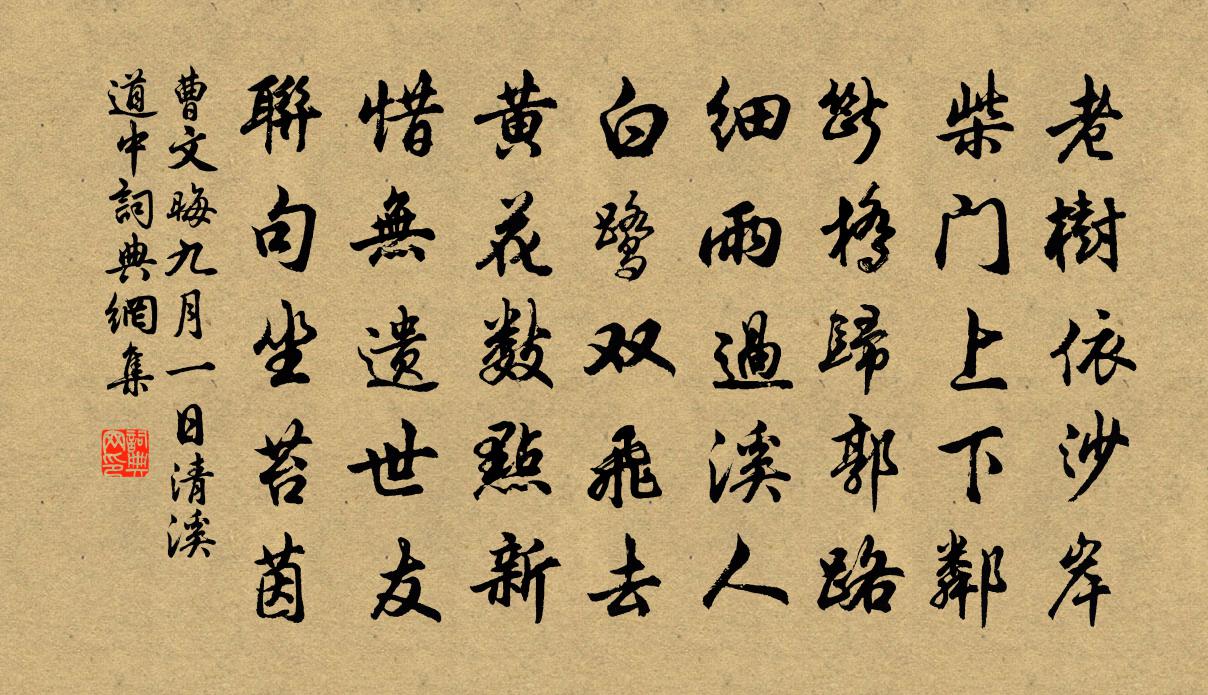 老樹依沙岸
柴門上下鄰
斷橋歸郭路
細雨過溪人
白鷺双飛去
黃花數點新
惜無遺世友
聯句坐苔茵
曹文晦九月一日清溪
道中詞典網集
詞典网印